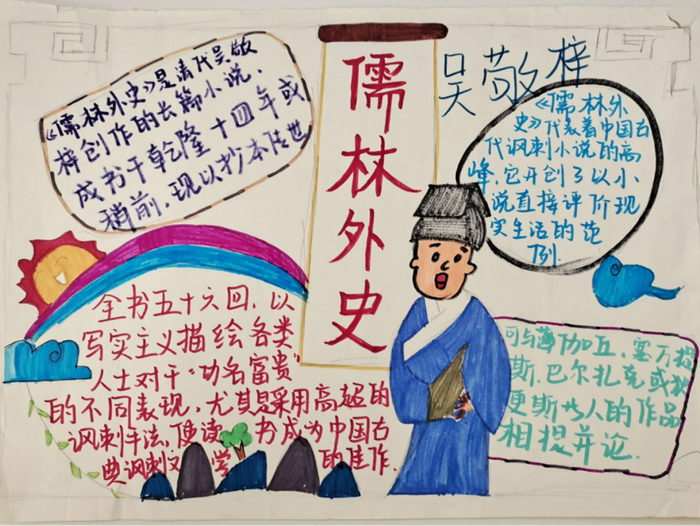 儒林外史
吴敬梓
《儒林外史》是清代吴敬
梓创作的长篇小说,
成书于乾隆十四年或
稍前,现以抄本传世
《儒林外
史》代表着中国古
代讽刺小说的高
峰,它开创了以小
说直接评价现
实生活的范
例.
全书五十六回,以
写实主义描绘各类
人士对于“功名富贵”
的不同表现,尤其是采用高超的
讽刺手法,使该书成为中国古
典讽刺文学的佳作.
可与薄伽丘,塞万提
斯,巴尔扎克或狄
更斯等人的作品
相提并论.